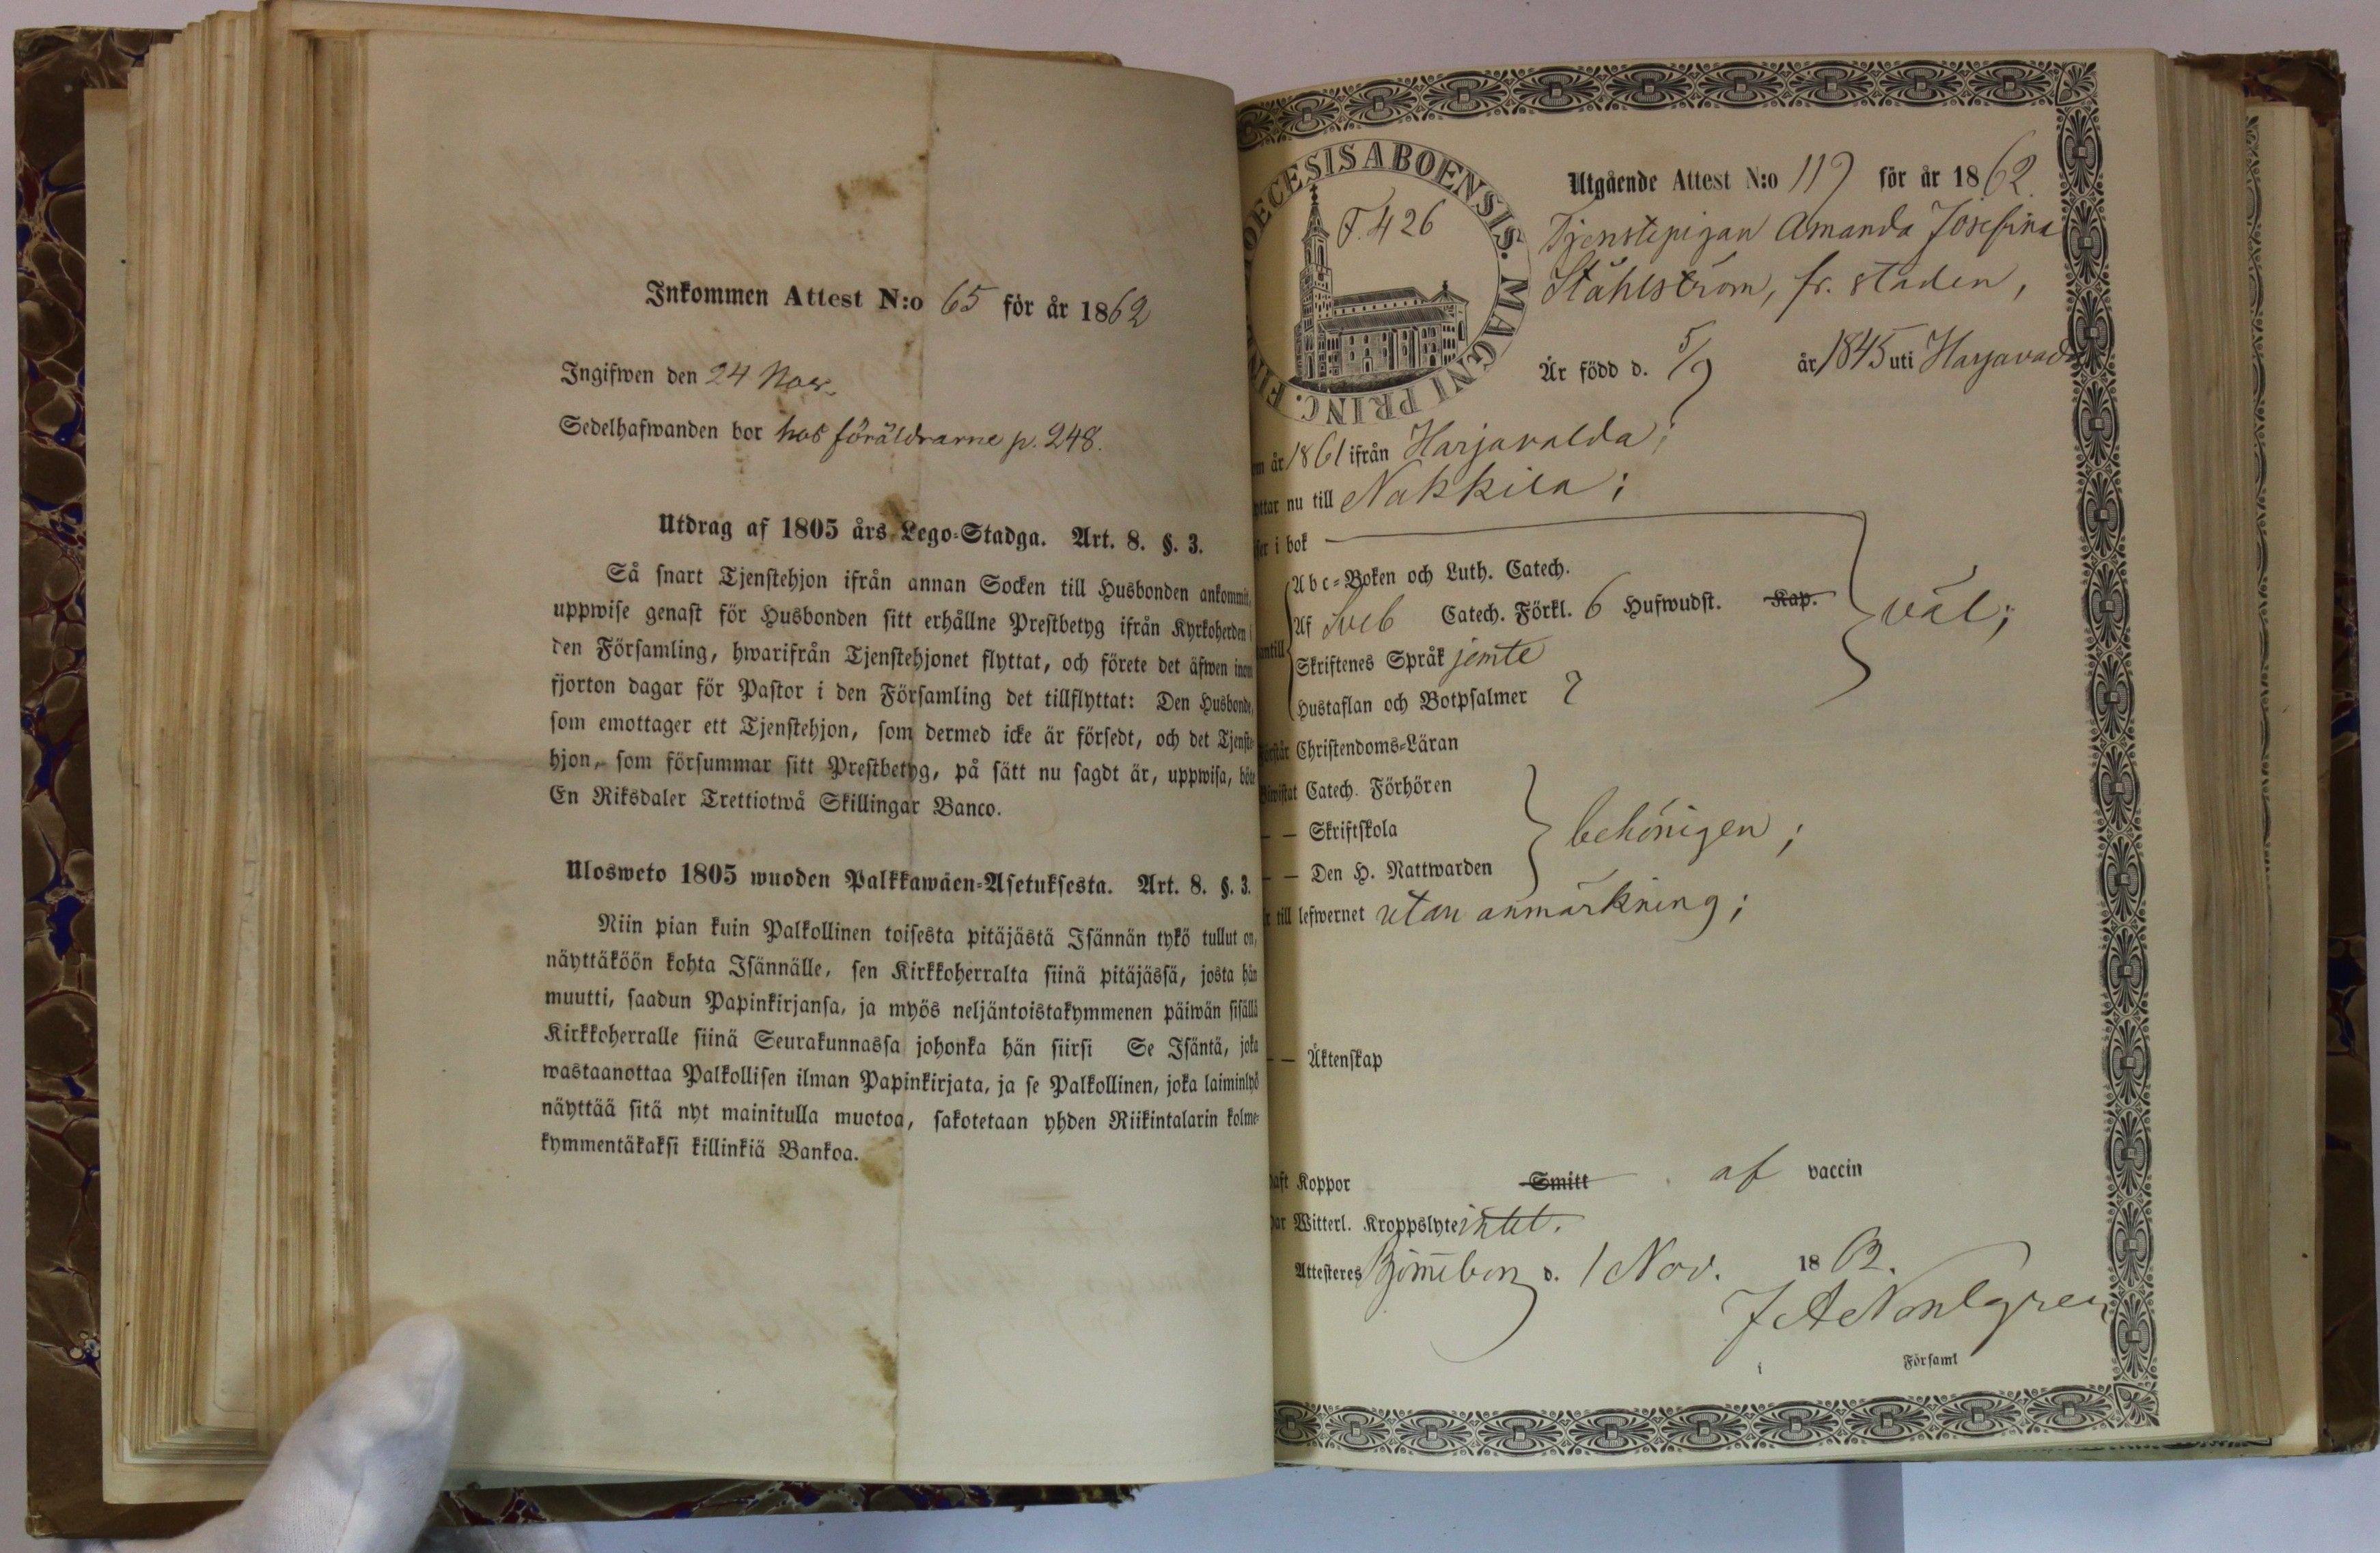 Inkommen Attest N:o 65 för år 1862
Ingifwen den 24 Nov.
Sedelhafwanden bor hos föräldrarne p. 248.
Utdrag af 1805 års Lego-Stadga. Art. 8. §. 3.
Så snart Tjenstehjon ifrån annan Socken till Husbonden ankommit,
uppwise genast för Husbonden sitt erhållne Prestbetyg ifrån Kyrkoherden i
den Församling, hwarifrån Tjenstehjonet flyttat, och förete det äfwen inom
fjorton dagar för Pastor i den Församling det tillflyttat: Den Husbonde,
som emottager ett Tjenstehjon, som dermed icke är försedt, och det Tjenste-
hjon, som försummar sitt Prestbetyg, på sätt nu sagdt är, uppwisa, böte
En Riksdaler Trettiotwå Skillingar Banco.
Ulosweto 1805 wuoden Palkkawäen-Asetuksesta. Art. 8. §. 3.
Niin pian kuin Palkollinen toisesta pitäjästä Isännän tykö tullut on,
näyttäköön kohta Isännälle, sen Kirkkoherralta siinä pitäjässä, josta hän
muutti, saadun Papinkirjansa, ja myös neljäntoistakymmenen päiwän sisällä
Kirkkoherralle siinä Seurakunnassa johonka hän siirsi Se Isäntä, joka
wastaanottaa Palkollisen ilman Papinkirjata, ja se Palkollinen, joka laiminlyö
näyttää sitä nyt mainitulla muotoa, sakotetaan yhden Riikintalarin kolme-
kymmentäkaksi killinkiä Bankoa.
OECESIS ABOENSIS. MAGNI PRINC. FIN
F. 426
Utgående Attest N:o 119 för år 1862.
Tjenstepigan Amanda Josefina
Ståhlström, fr. staden,
Är född d. 5/9 år 1845 uti Harjavalda
om år 1861 ifrån Harjavalda;
yttar nu till Nakkila;
ser i bok
Abc-Boken och Luth. Catech.
Af Sveb Catech. Förkl. 6 Hufwudst. Kap. väl;
antill
Skriftenes Språk jemte
Hustaflan och Botpsalmer
Förstår Christendoms-Läran
Bewistat Catech. Förhören
— — Skriftskola behörigen;
— — Den H. Nattwarden
r till lefwernet utan anmärkning;
— — Äktenskap
haft Koppor Smitt af vaccin
har Witterl. Kroppslyte intet.
Attesteres Björneborg d. 1 Nov. 1862.
J A Norlgren
i Församl